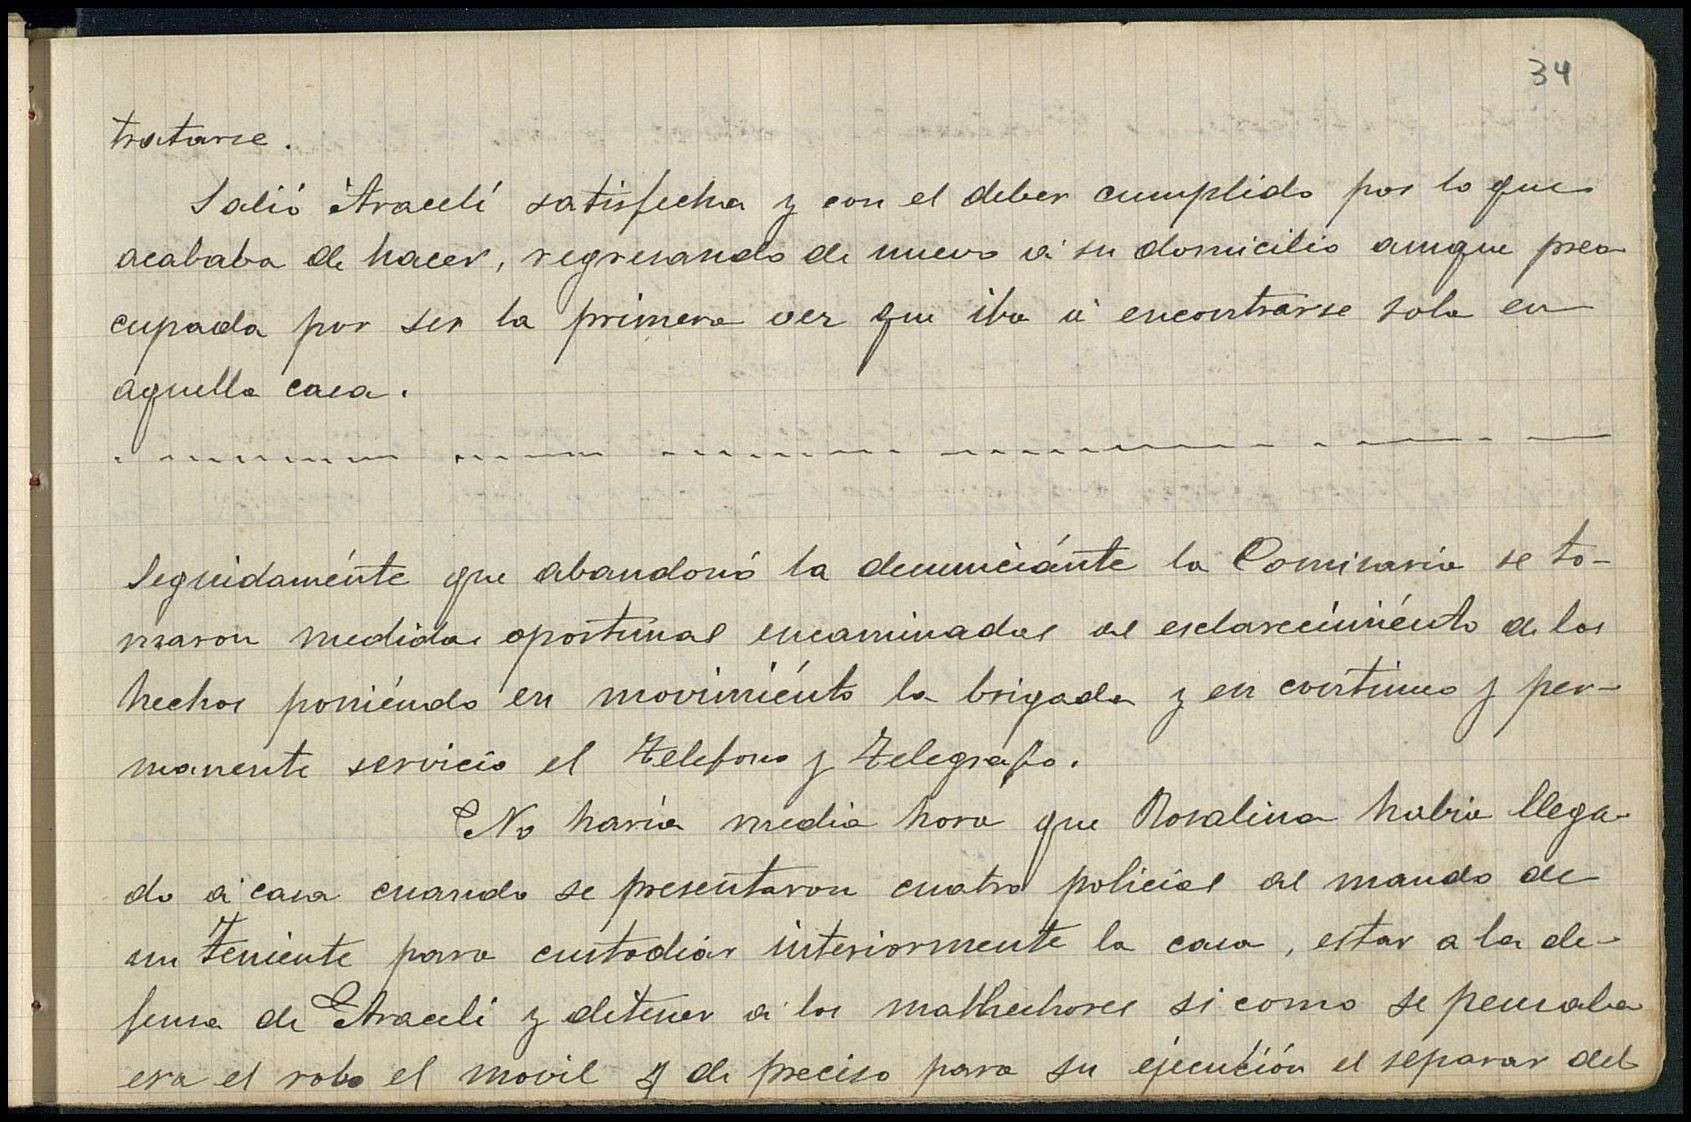 34
tratarse.
Salió Aracelí satisfecha y con el deber cumplido por lo que
acababa de hacer, regresando de nuevo á su domicilio aunque preo
cupada por ser la primera vez que iba á encontrarse sola en
aquella casa.
Seguidaménte que abandonó la denunciánte la Comisaria se to-
maron medidas oportunas encaminadas al esclarecimiénto de los
hechos poniéndo en movimiénto la brigada y en continuo y per-
manente servicio el Telefono y Telegrafo.
No haría media hora que Rosalina habia llega-
do á casa cuando se presentaron cuatro policias al mando de
un Teniente para custodiar interiormente la casa, estar a la de-
fensa de Araceli y detener á los malhechores si como se pensaba
era el robo el movil y de preciso para su ejecución el separar del